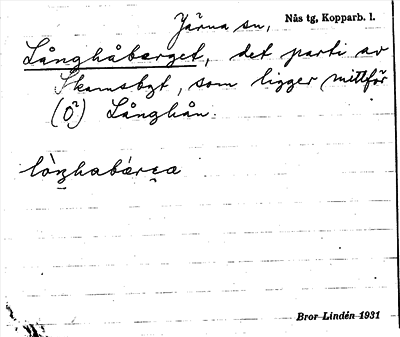 Järna sn, Nås tg, Kopparb. l.
Långhåberget, det parti av
Skamsbgt, som ligger mittför
(Ö²) Långhån.
lòŋhabǽrɛa
Bror Lindén 1931